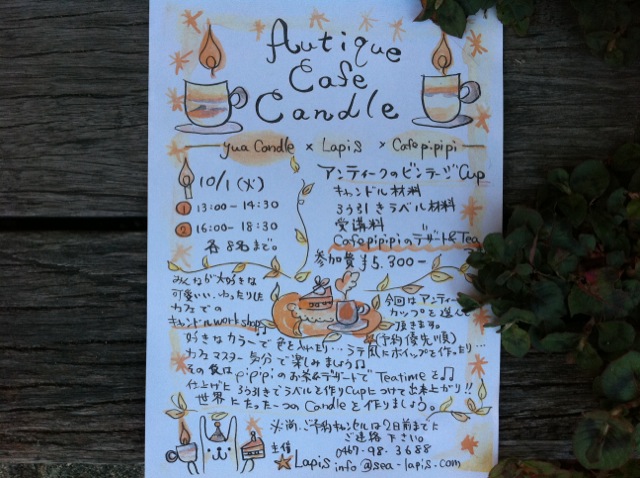 Autique
Cafe
Candle
yua Candle × Lapis × Cafe pipipi
10/1 (火)
① 13:00 - 14:30
② 16:00 - 18:30
各8名まで。
アンティークのビンテージCup
キャンドル材料
ろう引きラベル材料
受講料
Cafe pipipiのデザート&Tea
参加費 ¥5.300-
みんなが大好きな
可愛いい、ゆったりした
カフェでの
キャンドルworkshop♪
今回はアンティーク
カップを選んで
頂きます。
(予約優先順)
好きなカラーで色を入れたり…ラテ風にホイップを作ったり…
カフェマスター気分で楽しみましょう♫
その後は pipipiの お茶&デザートで Teatimeを♫
仕上げに ろう引きでラベルを作りCupにつけて出来上がり!!
世界にたった一つの Candleを作りましょう。
※尚、ご予約キャンセルは2日前までに
ご連絡下さい。
主催 0467-98-3688
★Lapis info@sea-lapis.com